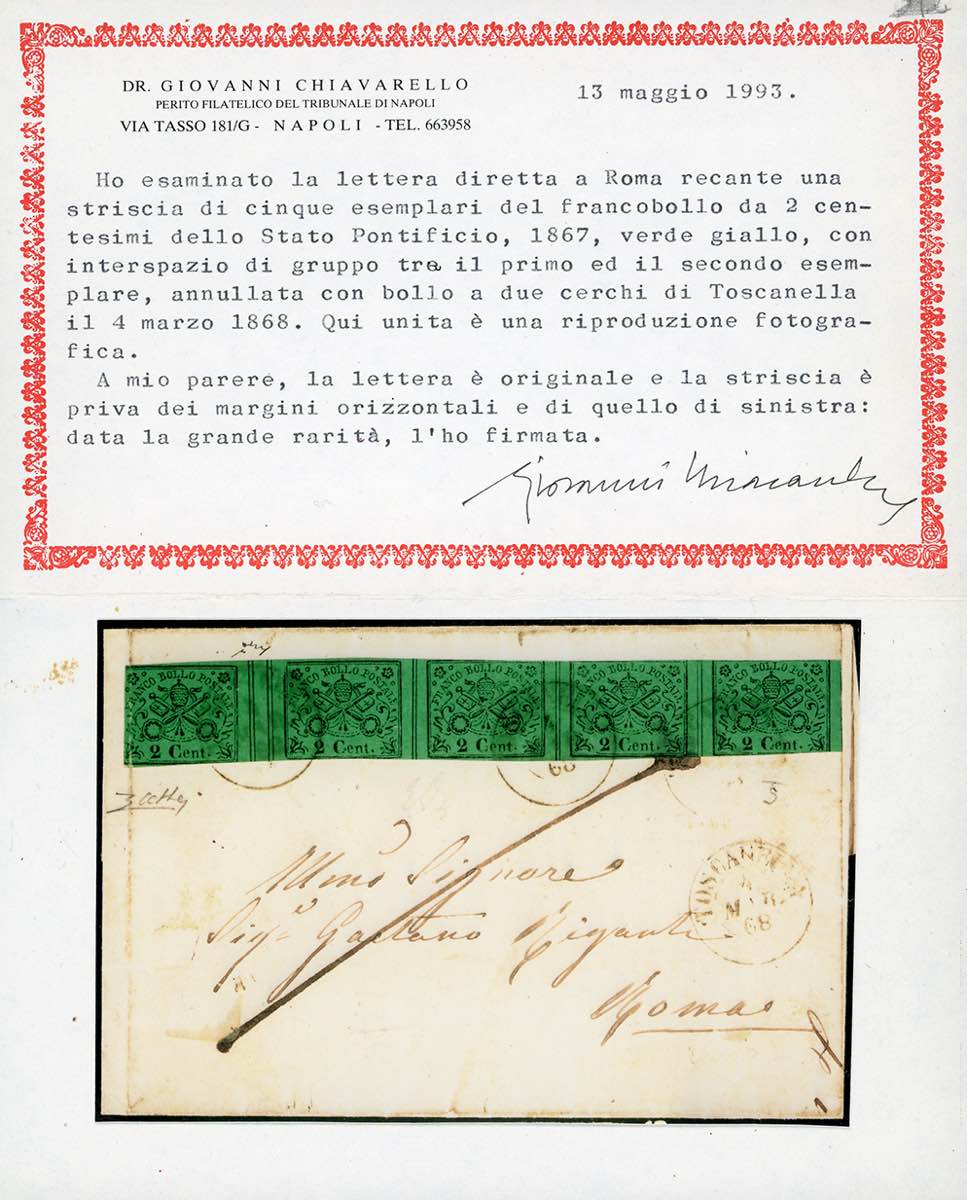 DR. GIOVANNI CHIAVARELLO
PERITO FILATELICO DEL TRIBUNALE DI NAPOLI
VIA TASSO 181/G - NAPOLI - TEL. 663958
13 maggio 1993.
Ho esaminato la lettera diretta a Roma recante una
striscia di cinque esemplari del francobollo da 2 cen-
tesimi dello Stato Pontificio, 1867, verde giallo, con
interspazio di gruppo tra il primo ed il secondo esem-
plare, annullata con bollo a due cerchi di Toscanella
il 4 marzo 1868. Qui unita è una riproduzione fotogra-
fica.
A mio parere, la lettera è originale e la striscia è
priva dei margini orizzontali e di quello di sinistra:
data la grande rarità, l'ho firmata.
BOLLO POSTALE
2 Cent.
FRANCO BOLLO POSTALE
2 Cent.
FRANCO BOLLO POSTALE
2 Cent.
FRANCO BOLLO POSTALE
2 Cent.
FRANCO BOLLO POSTALE
2 Cent.
68
Signore
Gaetano Rigante
Roma
4
MAR
68